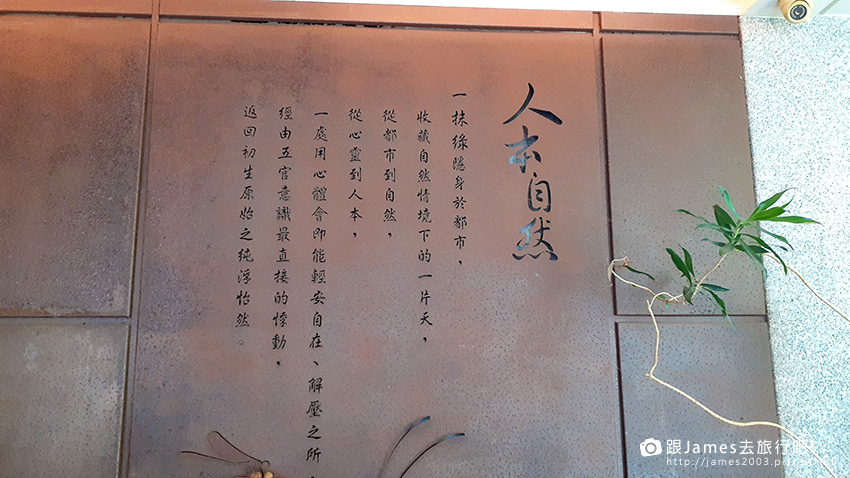 人本自然
一抹綠隱身於都市，
收藏自然情境下的一片天，
從都市到自然，
從心靈到人本，
一處用心體會即能輕安自在、解壓之所
經由五官意識最直接的悸動，
返回初生原始之純淨怡然。
跟James去旅行吧!
http://james2003.pixnet.net